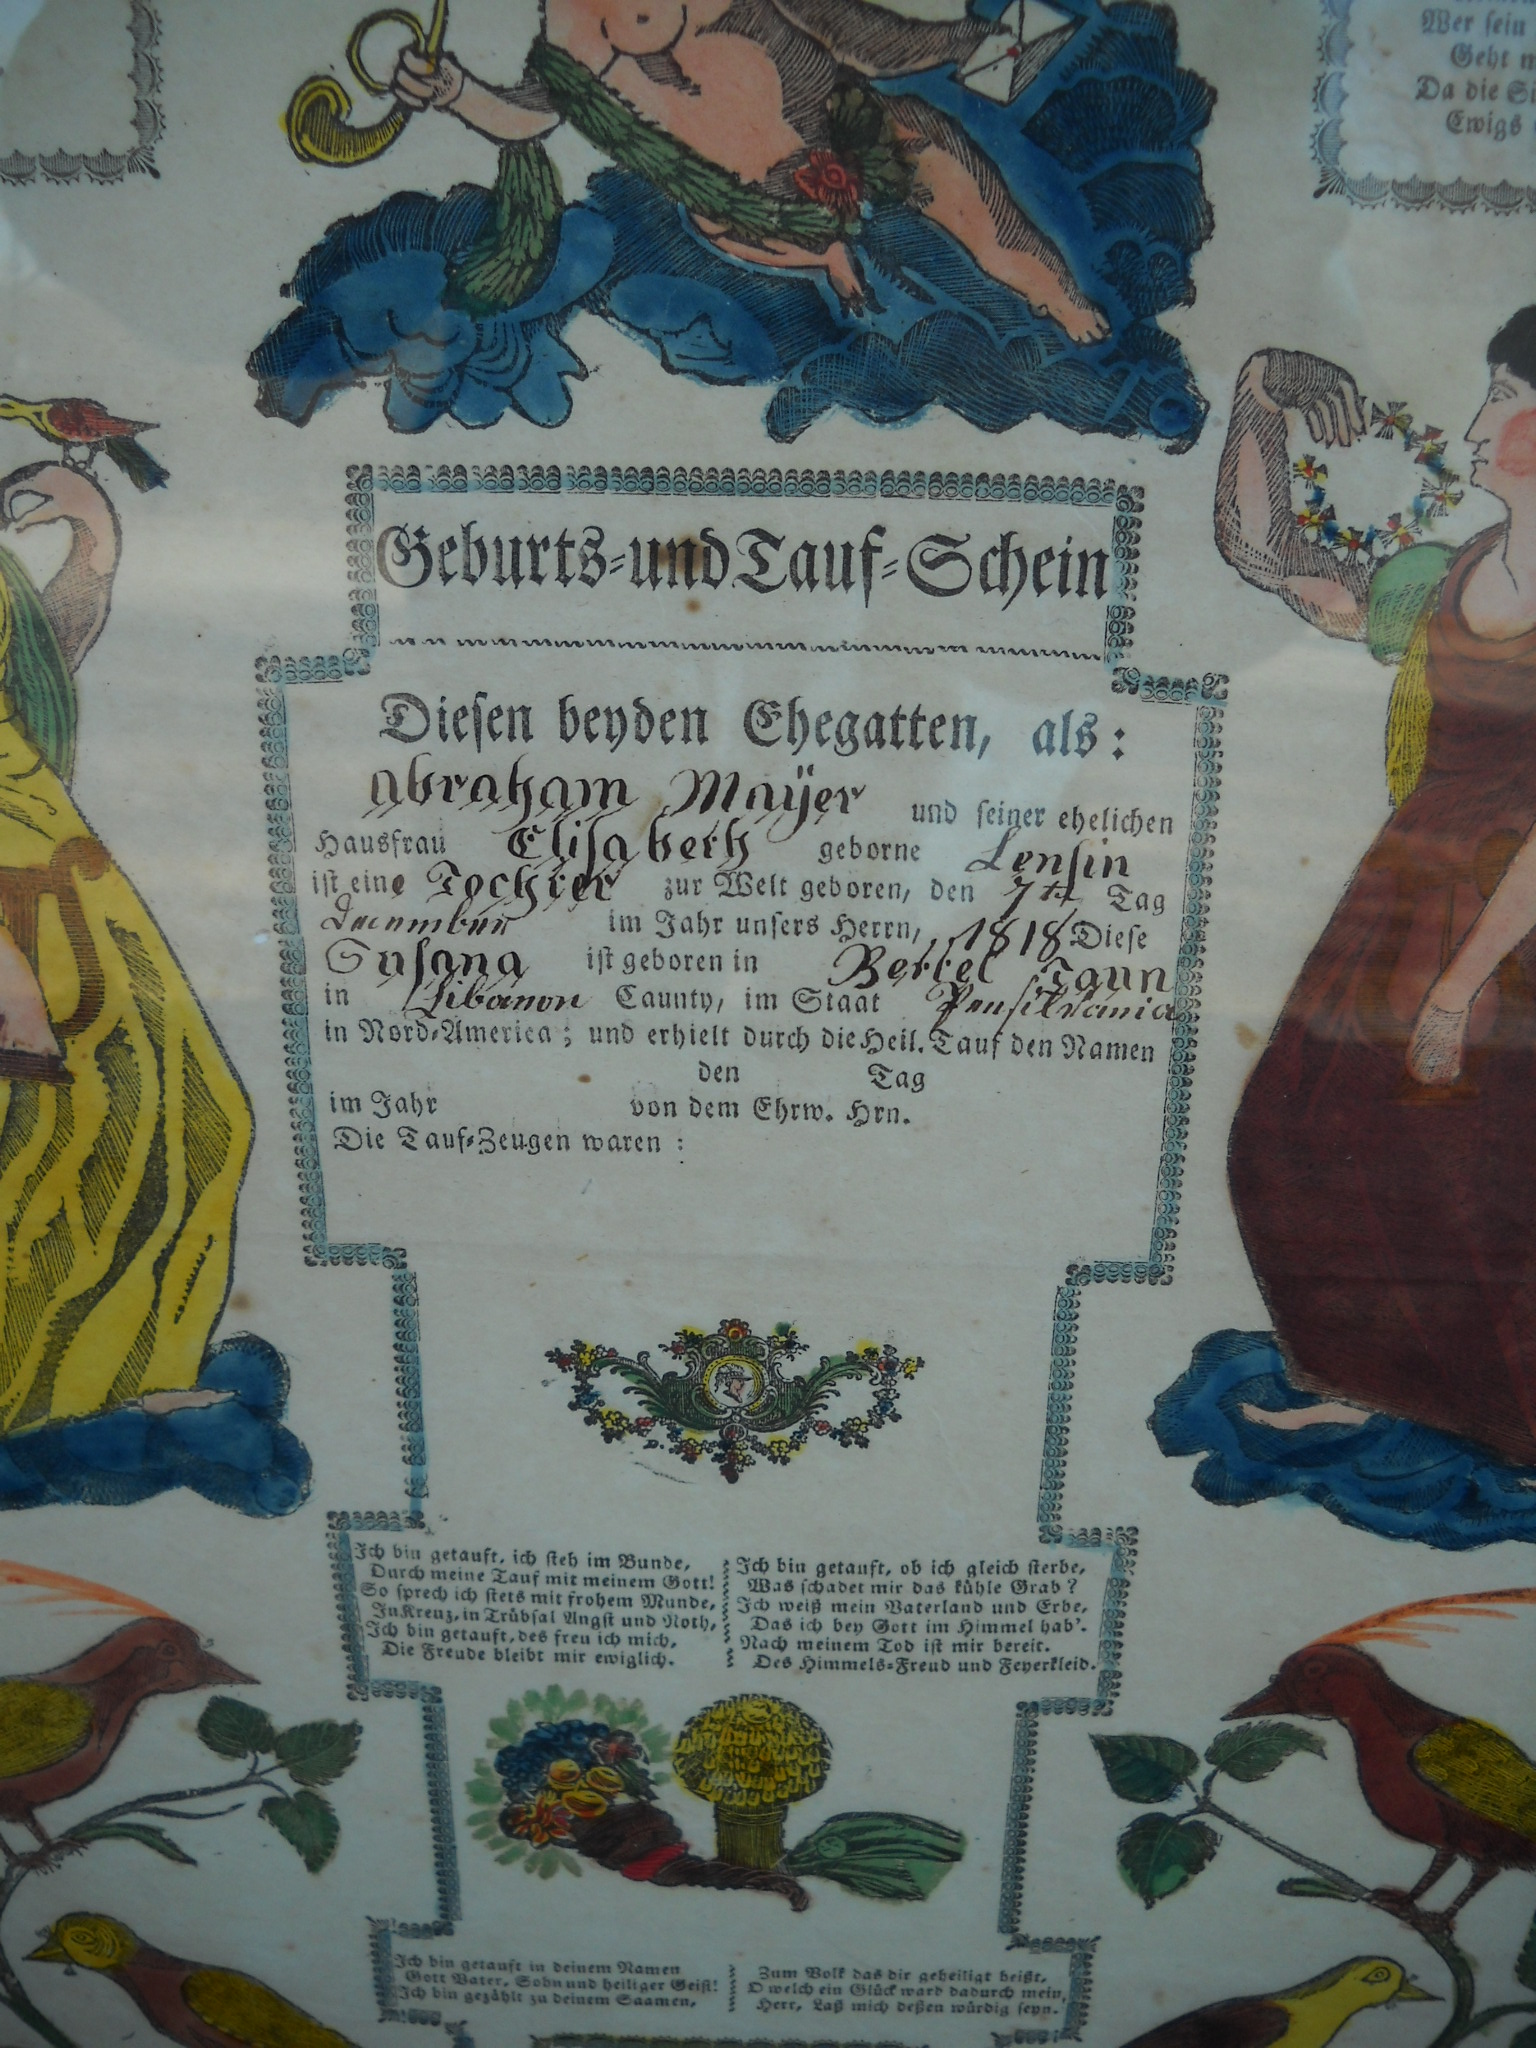 Wer sein
Geht
Da die
Ewigs
Geburts-und Tauf-Schein
Diesen beyden Ehegatten, als:
Abraham Mayer und seiner ehelichen
Hausfrau Elisabeth geborne Lensin
ist eine Tochter zur Welt geboren, den 7te Tag
December im Jahr unsers Herrn, 1818 Diese
Susana ist geboren in Bettel Taun
in Libanon Caunty, im Staat Pensilvania
in Nord-America; und erhielt durch die Heil. Tauf den Namen
den Tag
im Jahr von dem Ehrw. Hrn.
Die Tauf-Zeugen waren :
Ich bin getauft, ich steh im Bunde,
Durch meine Tauf mit meinem Gott!
So sprech ich stets mit frohem Munde,
In Kreuz, in Trübsal Angst und Noth,
Ich bin getauft, des freu ich mich,
Die Freude bleibt mir ewiglich.
Ich bin getauft, ob ich gleich sterbe,
Was schadet mir das kühle Grab?
Ich weiß mein Vaterland und Erbe,
Das ich bey Gott im Himmel hab'.
Nach meinem Tod ist mir bereit.
Des Himmels-Freud und Feyerkleid.
Ich bin getauft in deinem Namen
Gott Vater, Sohn und heiliger Geist!
Ich bin gezählt zu deinem Saamen,
Zum Volk das dir geheiligt heißt.
O welch ein Glück ward dadurch mein,
Herr, Laß mich deßen würdig seyn.